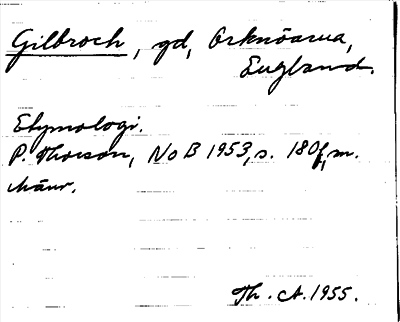 Gilbroch, gd, Orknöarna,
England.
Etymologi.
P. Thorson, NoB 1953, s. 180 f, m.
hänv.
Th. A. 1955.